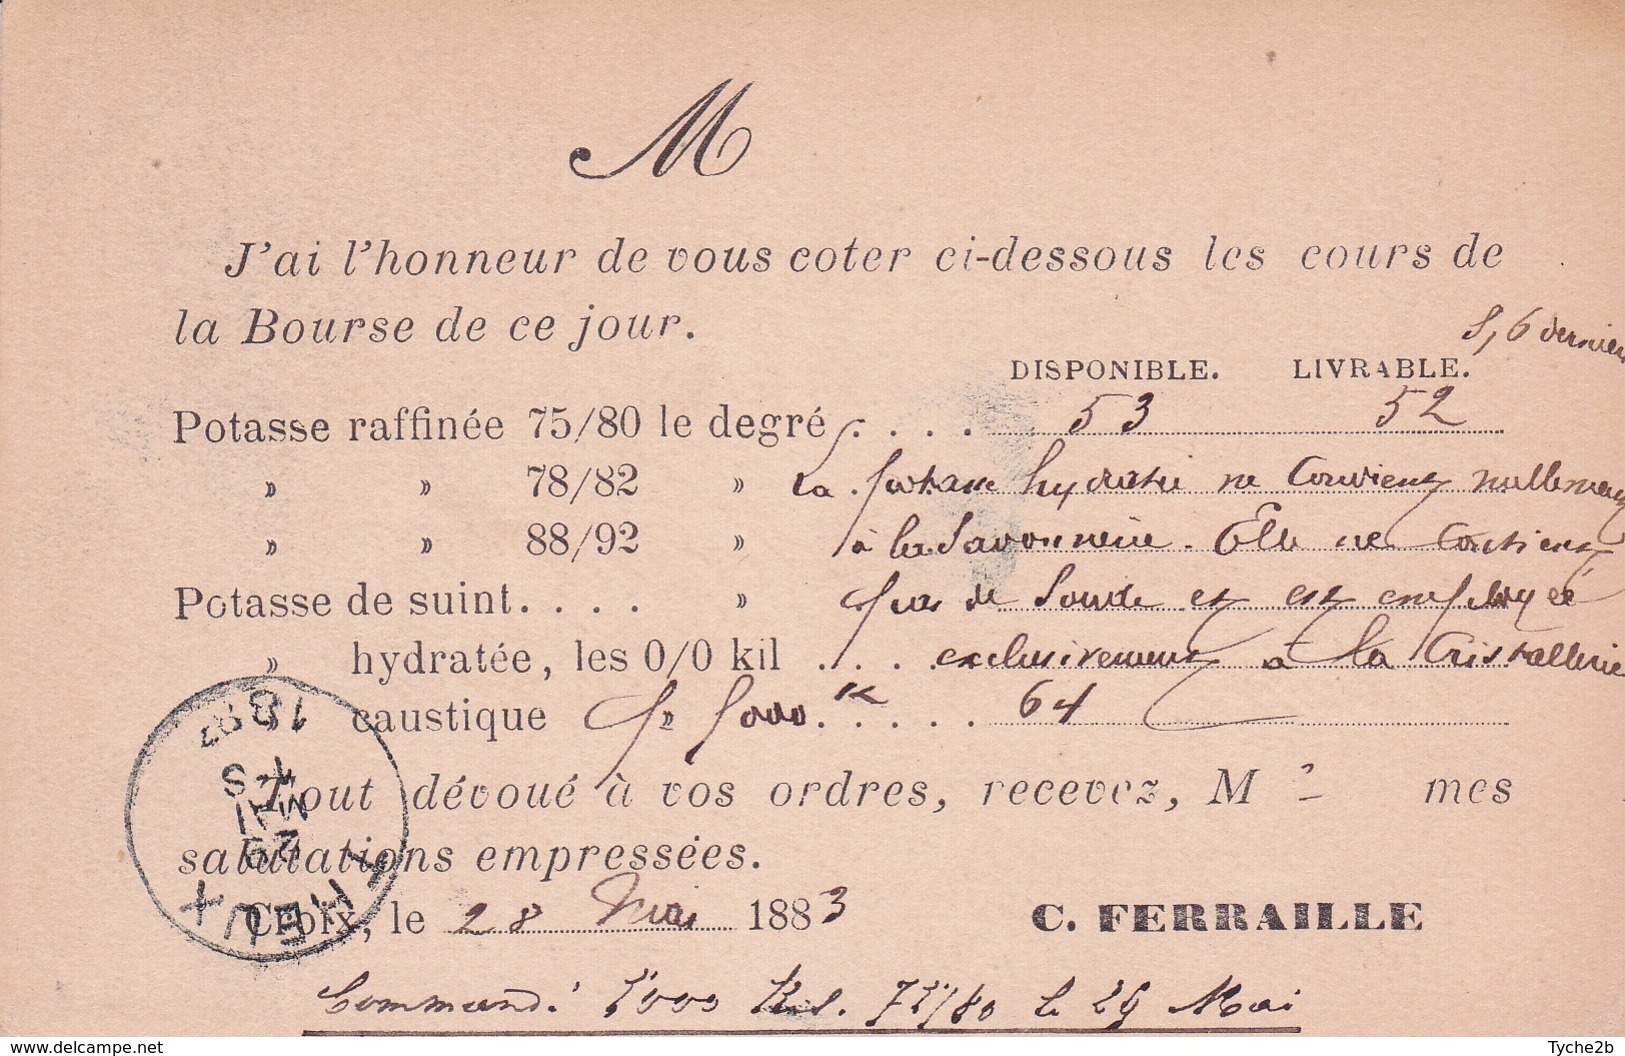 M
J'ai l'honneur de vous coter ci-dessous les cours de
la Bourse de ce jour.
5,6 derniers
DISPONIBLE. LIVRABLE.
Potasse raffinée 75/80 le degré . . . . 53 52
» » 78/82 » La potasse hydratée ne convient nullement
» » 88/92 » à la Savonnerie. Elle ne contient
Potasse de suint. . . . » pas de Soude et est employée
» hydratée, les 0/0 kil . . . . exclusivement à la Cristallerie
» caustique . . . . . 64
Tout dévoué à vos ordres, recevez, M mes
salutations empressées.
Croix, le 28 Mai 1883 C. FERRAILLE
Commandé 5000 Kil. 75/80 le 29 Mai
1883
7 S
MAI
29
HEUX
www.delcampe.net Tyche2b